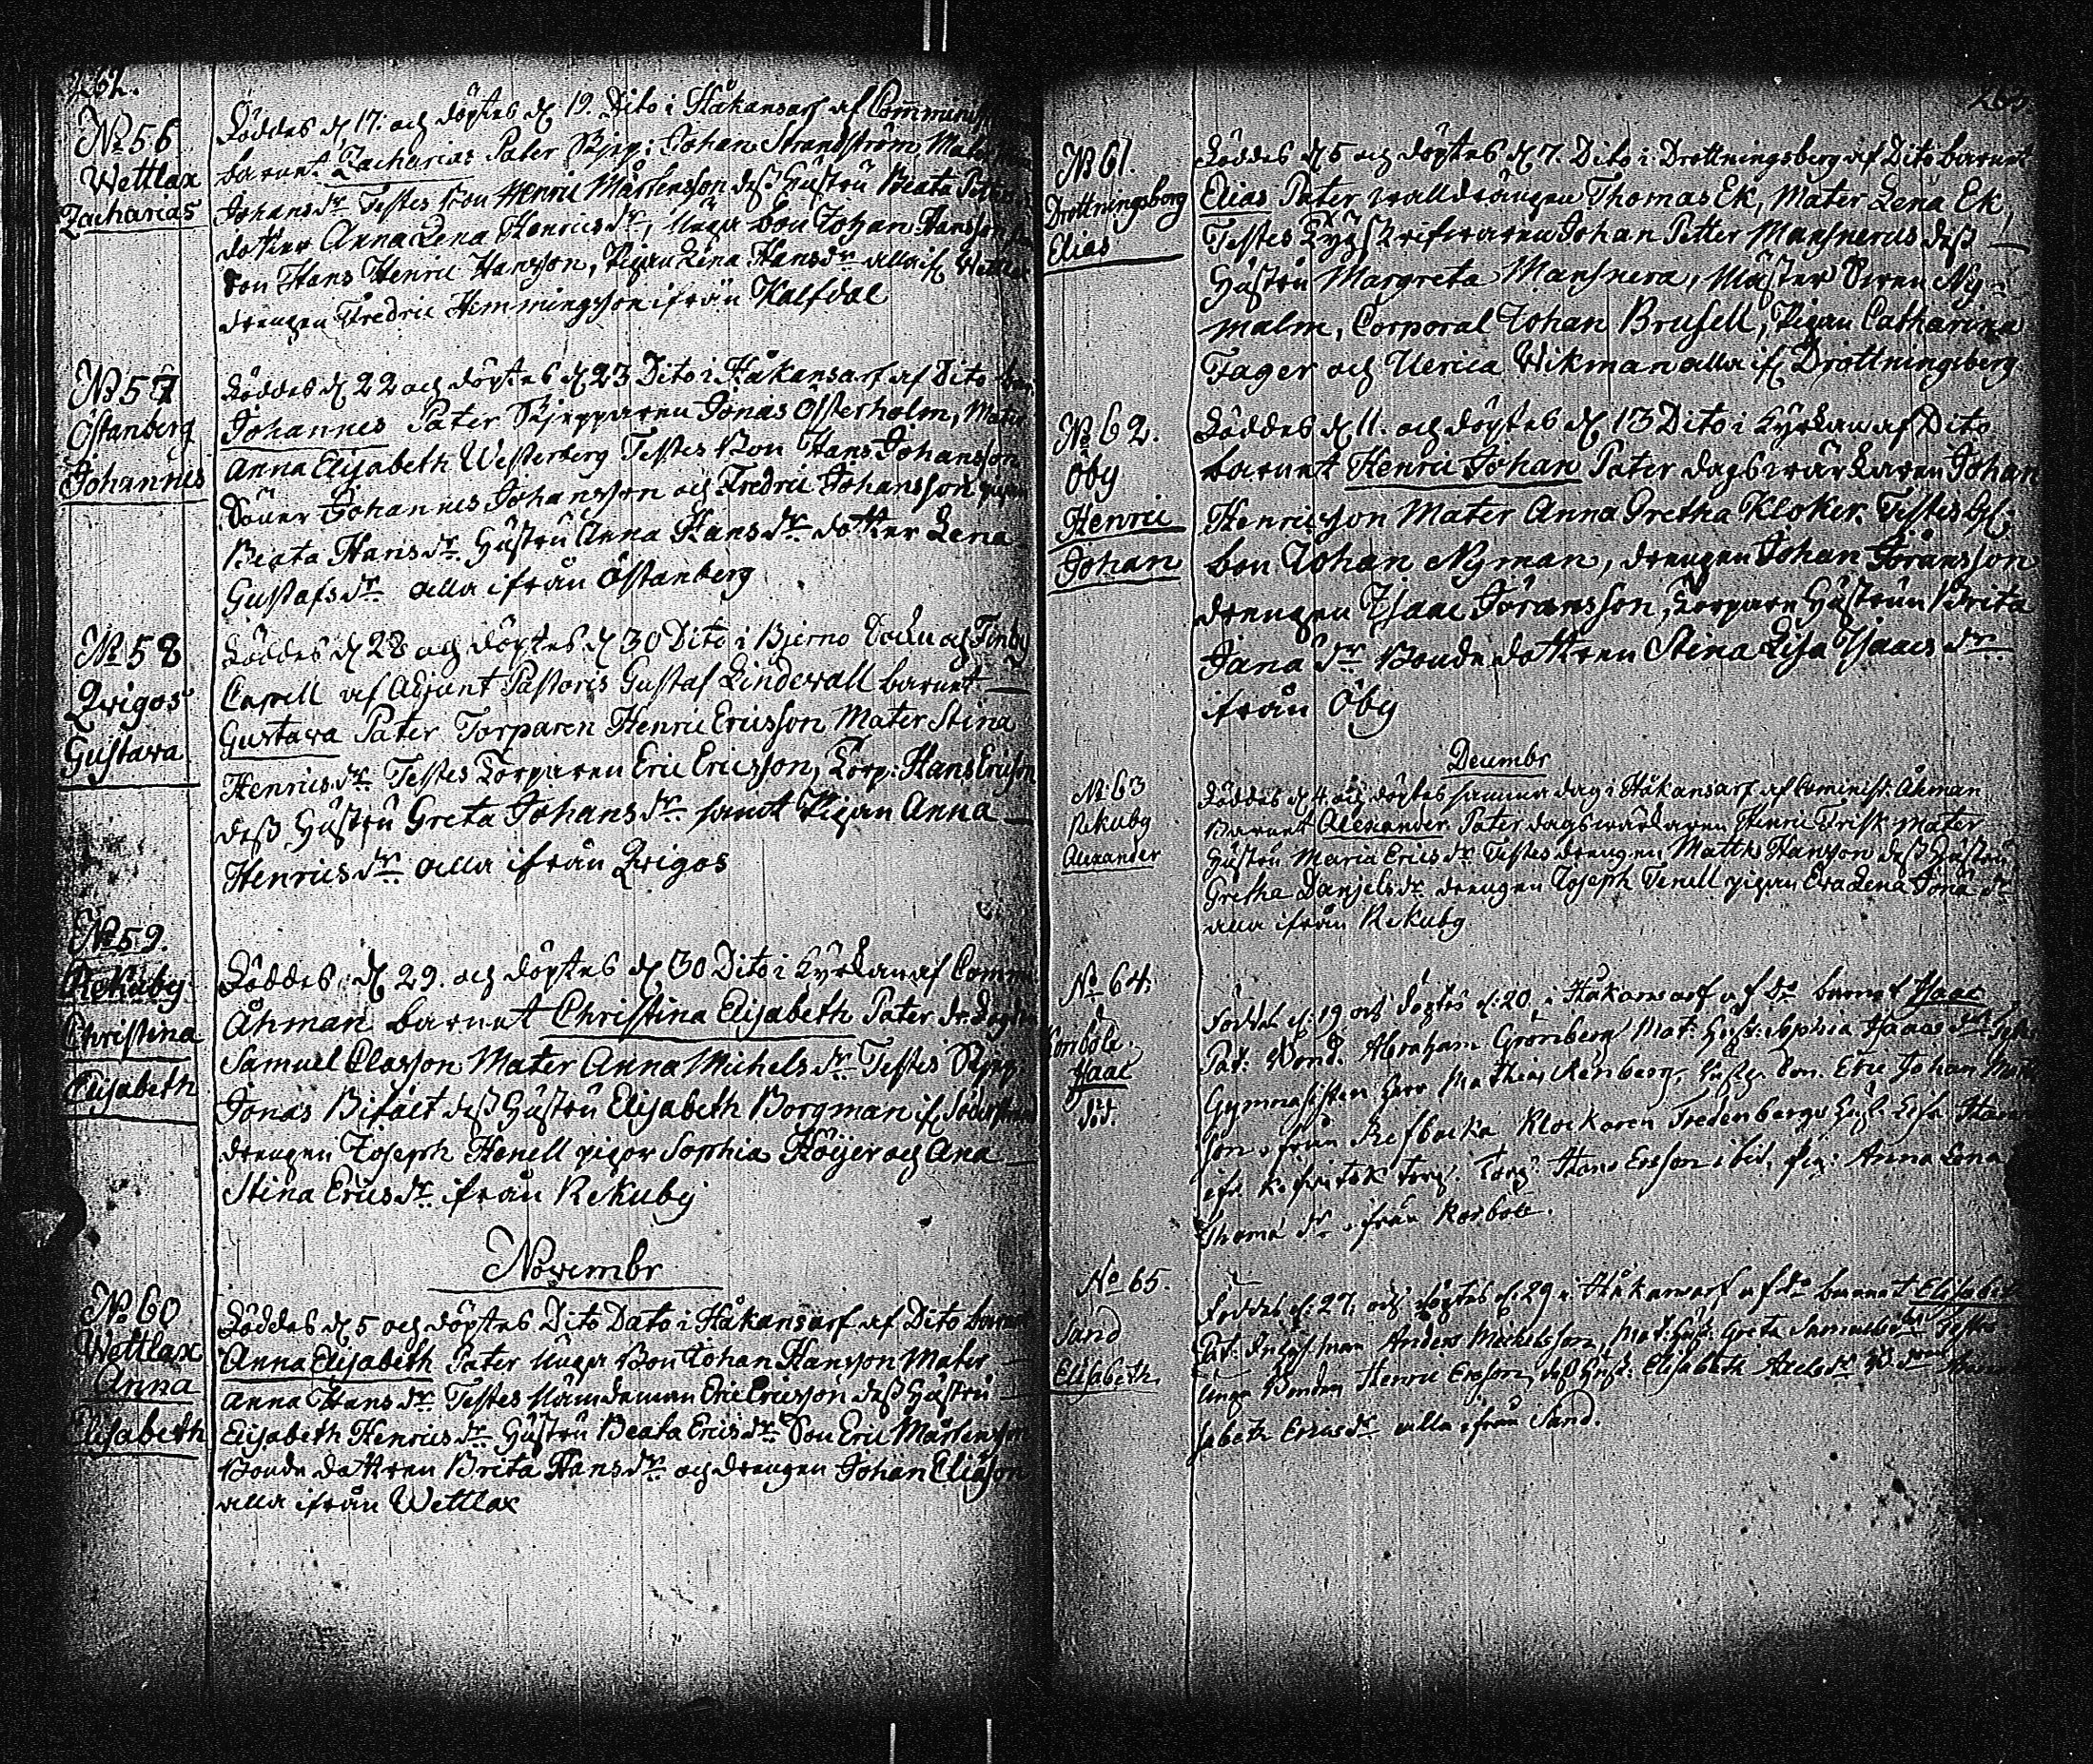 262.
No 56
Wettlax
Zacharias
Föddes d 17. och döptes d 19. Dito i Håkansarf af Comminist
barnet Zacharias Pater Skjep: Johan Strandström, Mater
Johans dr Testes Bon Henric Mårtensson dess Hustru Beata Petters
dotter Anna Lena Henrics dr, Unga bon Johan Hansson
Son Hans Henric Hansson, Pigan Lena Hans dr alla if Wettlax
drengen Fredric Hemmingsson ifrån Kalfdal
No 57
Östanberg
Johannes
Föddes d 22 och döptes d 23 Dito i Håkansarf af Dito
Johannes Pater Skjepparen Jonas Österholm, Mater
Anna Elisabeth Westerberg Testes Bon Hans Johansson
Söner Johannes Johansson och Fredric Johansson pigan
Beata Hans dr Hustru Anna Hans dr dotter Lena
Gustafs dr alla ifrån Östanberg
No 58
Qvigos
Gustava
Föddes d 28 och döptes d 30 Dito i Bjerno Sockn och Finby
Capell af Adjunct Pastoris Gustaf Lindevall barnet
Gustava Pater Torparen Henric Ericsson Mater Stina
Henrics dr Testes Torparen Eric Ericsson, Torp: Hans Ericsson
dess Hustru Greta Johans dr samt Pigan Anna
Henrics dr alla ifrån Qvigos
No 59.
Rekuby
Christina
Elisabeth
Föddes d 29. och döptes d 30 Dito i Kyrkan af Comm
Åhman barnet Christina Elisabeth Pater
Samuel Classon Mater Anna Michels dr Testes Skjep:
Jonas Bifalt dess Hustru Elisabeth Borgman if
drengen Joseph Henell pigor Sophia Höijer och Ana
Stina Erics dr ifrån Rekuby
Novembr
No 60
Wettlax
Anna
Elisabeth
Föddes d 5 och döptes Dito Dato i Håkansarf af Dito barnet
Anna Elisabeth Pater Unga Bon Johan Hansson Mater
Anna Hans dr Testes Nämdeman Eric Ericsson dess Hustru
Elisabeth Henrics dr Hustru Beata Erics dr Son Eric Mårtensson
Bonde dottren Brita Hans dr och drengen Johan Eliasson
alla ifrån Wettlax
No 61.
Drottningsberg
Elias
Föddes d 5 och döptes d 7. Dito i Drottningsberg af Dito barnet
Elias Pater Walldrängen Thomas Ek, Mater Lena Ek,
Testes Johan Petter Mansnerus dess
Hustru Margreta Mansnera, Mäster Sven Ny-
malm, Corporal Johan Brusell, Pigan Catharina
Fager och Ulrica Wikman alla if Drottningsberg
No 62.
Öby
Henric
Johan
Föddes d 11. och döptes d 13 Dito i Kyrkan af Dito
barnet Henric Johan Pater dagsvärkaren Johan
Henricsson Mater Anna Gretha Kloker. Testes
bon Johan Nyman, drengen Johan Göransson
drengen Isaac Göransson, Torpare Hustrun Brita
Jana dr Bonde dottren Stina Lisa Isaacs dr
ifrån Öby
Decembr
No 63
Rekuby
Alexander
Föddes d 4 och döptes samma dag i Håkansarf af Cominist: Åhman
Barnet Alexander Pater dagsvärkaren Henric Frisk Mater
Hustru Maria Erics dr Testes drengen Matts Hansson dess Hustru
Gretha Danjels dr drengen Joseph Tenell pigan Eva Lena Jona dr
alla ifrån Rekuby
No 64.
Korsböle.
Isaac
död.
Föddes d. 19 och döptes d: 20 i Håkansarf af do barnet Isaac
Pat: Bond: Abraham Grönberg Mat: Hust: Sophia Isaacs dr
Gymnasisten Herr Mathias Renberg, Eric Johan
son ifrån Refbacka Klockaren Fredenbergs Hust: Lisa
Torp: Hans Ersson ibid, pig: Anna Lena
Thoma dr ifrån Korsböle.
No 65.
Sand
Elisabeth.
Föddes d: 27. och döptes d: 29 i Håkansarf af do barnet Elisabeth
Pat: Anders Michelsson, Mat: Hust: Greta Samuels dr Testes
Unga Bonden Henric Ersson, dess Hust: Elisabeth Axels dr
sabeth Erics dr alla ifrån Sand.